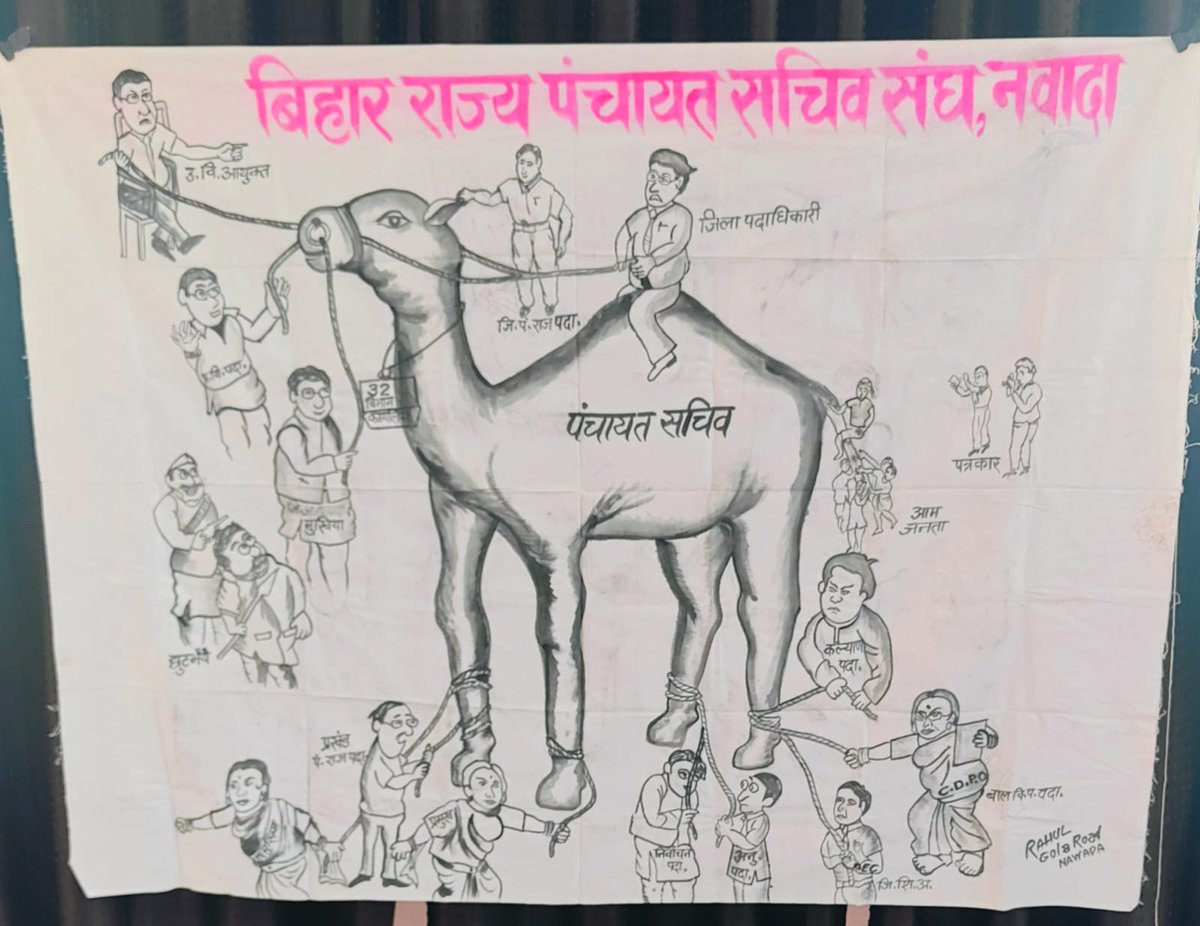 बिहार राज्य पंचायत सचिव संघ, नवादा
उ.वि.आयुक्त
जिला पदाधिकारी
जि.पं.राज पदा.
वि.पदा.
32
विभाग
पंचायत सचिव
पत्रकार
मुखिया
आम
जनता
छुटभैये
कल्याण
पदा.
प्रखंड
पं.राज पदा
प्रमुख
C.D.P.O
बाल वि.प.पदा.
निर्वाचन
पदा.
अनु
पदा.
जि.शि.अ.
RAHUL
GOLA ROAD
NAWADA